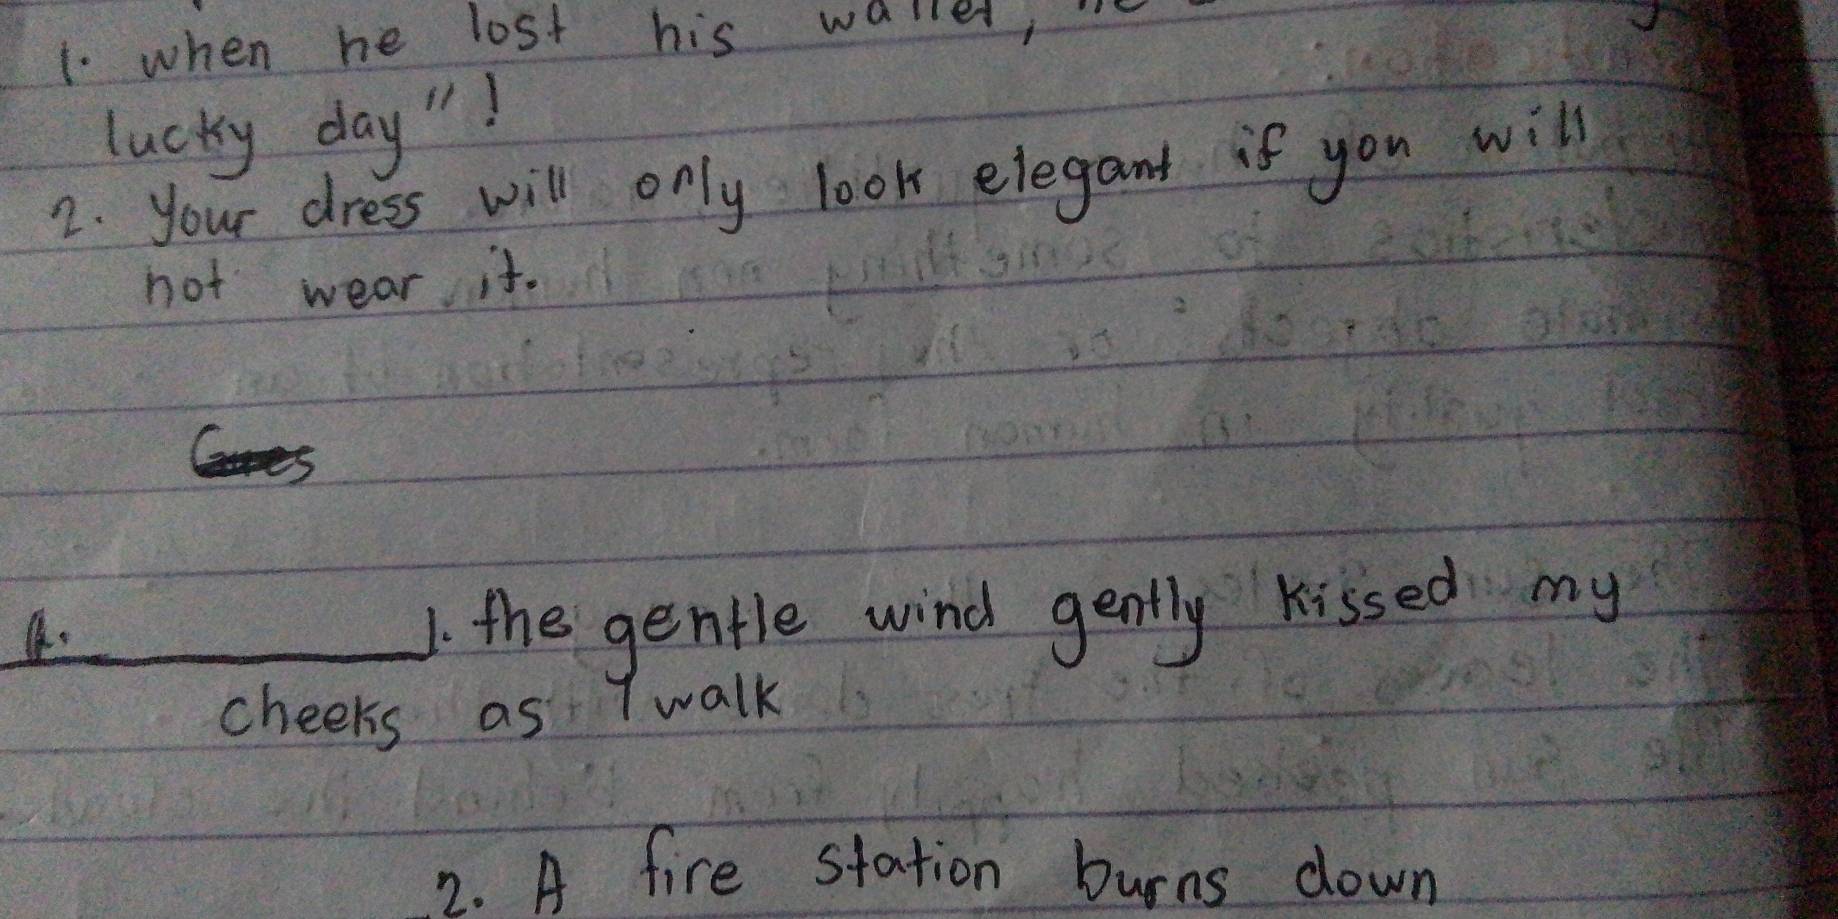 1. when he lost his wallet, he
lucky day"!
2. Your dress will only look elegant if you will
not wear it.
A. 1. the gentle wind gently kissed my
cheeks as I walk
2. A fire station burns down